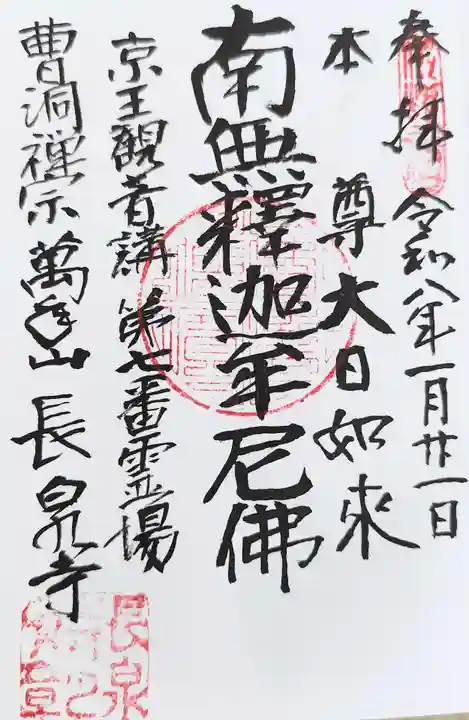 奉拝 令和八年一月廿一日
本尊大日如来
南無釋迦牟尼佛
京王観音講 第七番霊場
曹洞禅宗 萬年山 長泉寺
長泉